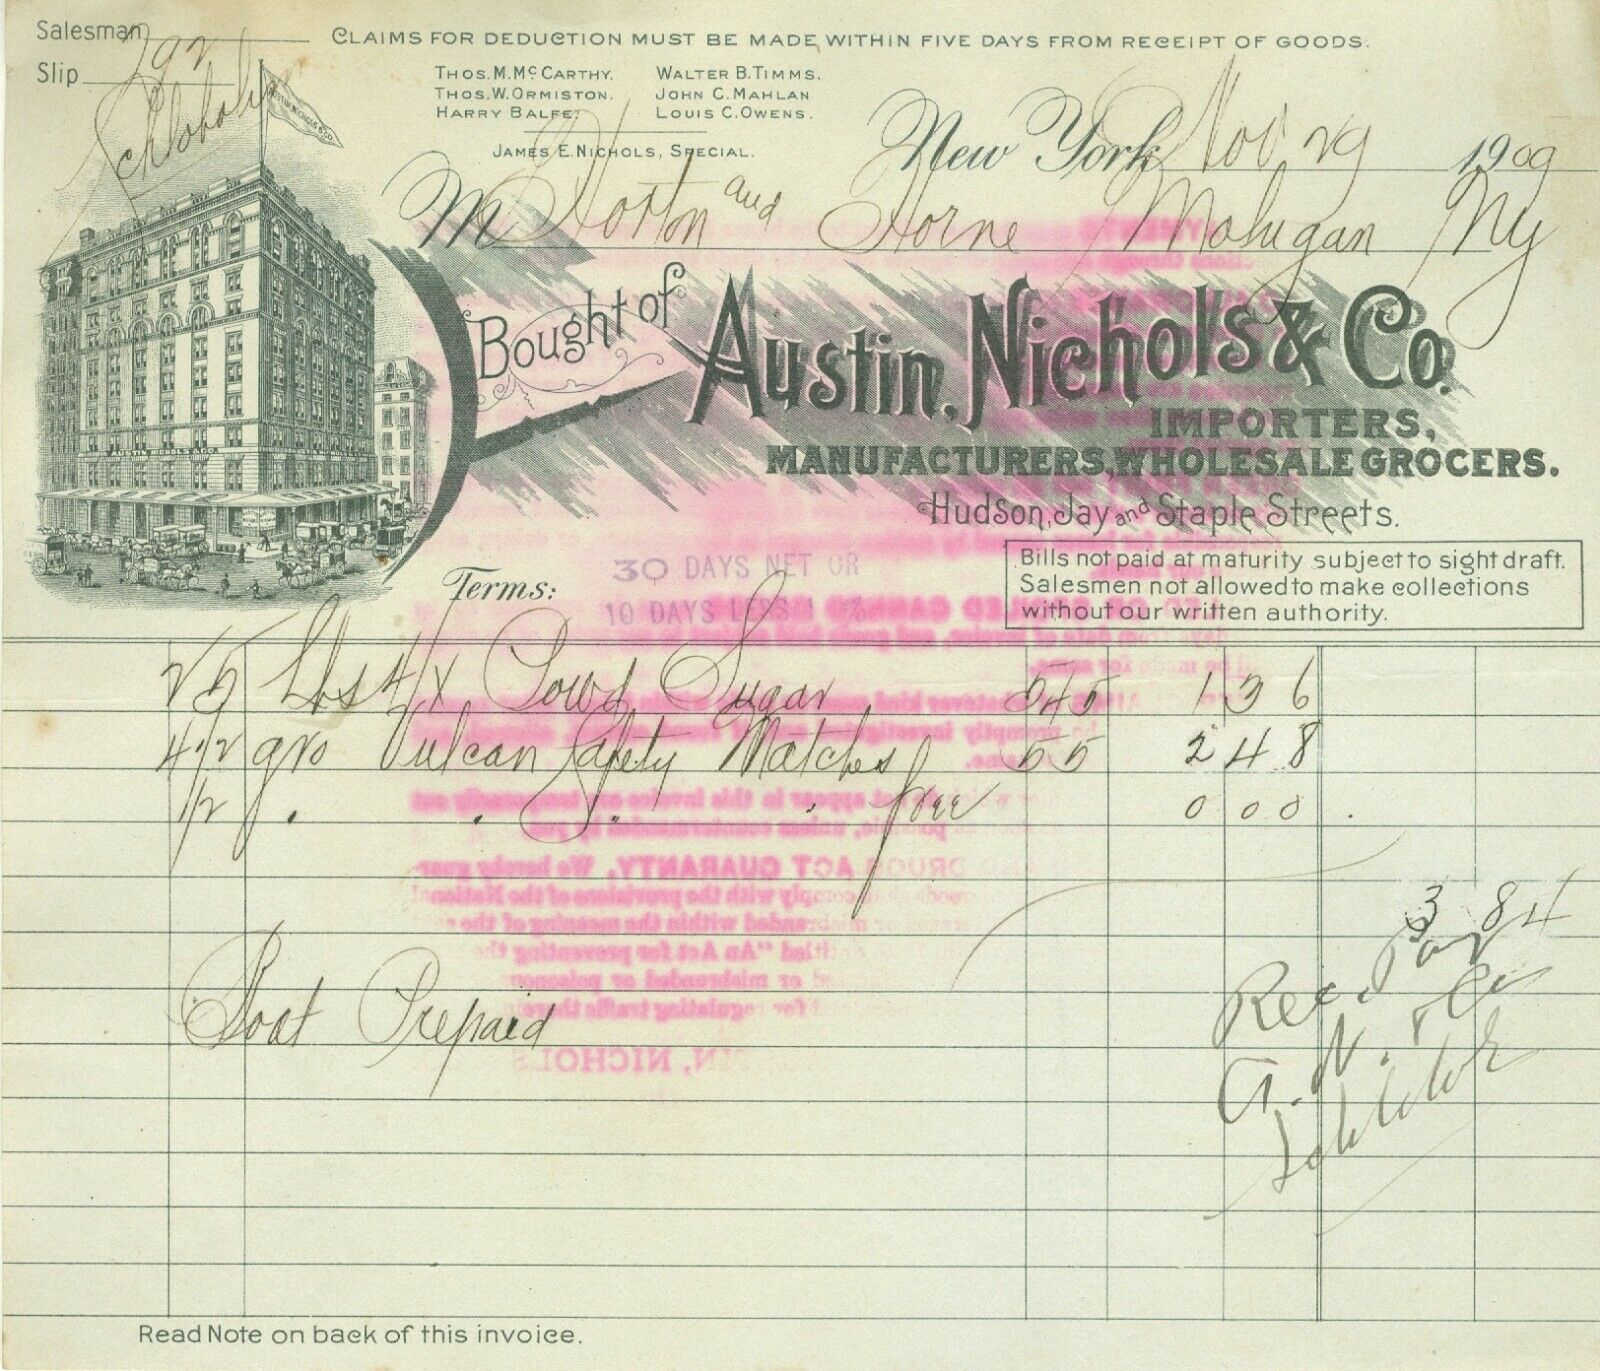 Salesman 292
CLAIMS FOR DEDUCTION MUST BE MADE WITHIN FIVE DAYS FROM RECEIPT OF GOODS.
Slip
THOS. M. McCARTHY. WALTER B. TIMMS.
THOS. W. ORMISTON. JOHN C. MAHLAN
HARRY BALFE. LOUIS C. OWENS.
JAMES E. NICHOLS, SPECIAL.
AUSTIN NICHOLS & CO.
New York Nov 29 1909
M Horton and Horne Mohegan Ny
Bought of
AUSTIN, NICHOLS & CO.
IMPORTERS,
MANUFACTURERS, WHOLESALE GROCERS.
Hudson, Jay and Staple Streets.
AUSTIN, NICHOLS & CO.
Bills not paid at maturity subject to sight draft.
Salesmen not allowed to make collections
without our written authority.
Terms:
30 DAYS NET OR
10 DAYS LESS 1 %
25 Lbs 4/X Powd Sugar 545 1 36
4 1/2 gro Vulcan Safety Matches 55 2 48
1/2 g. . . . free 0 00
3 84
Boat Prepaid
Rec. Pay
A. N. & Co
Read Note on back of this invoice.